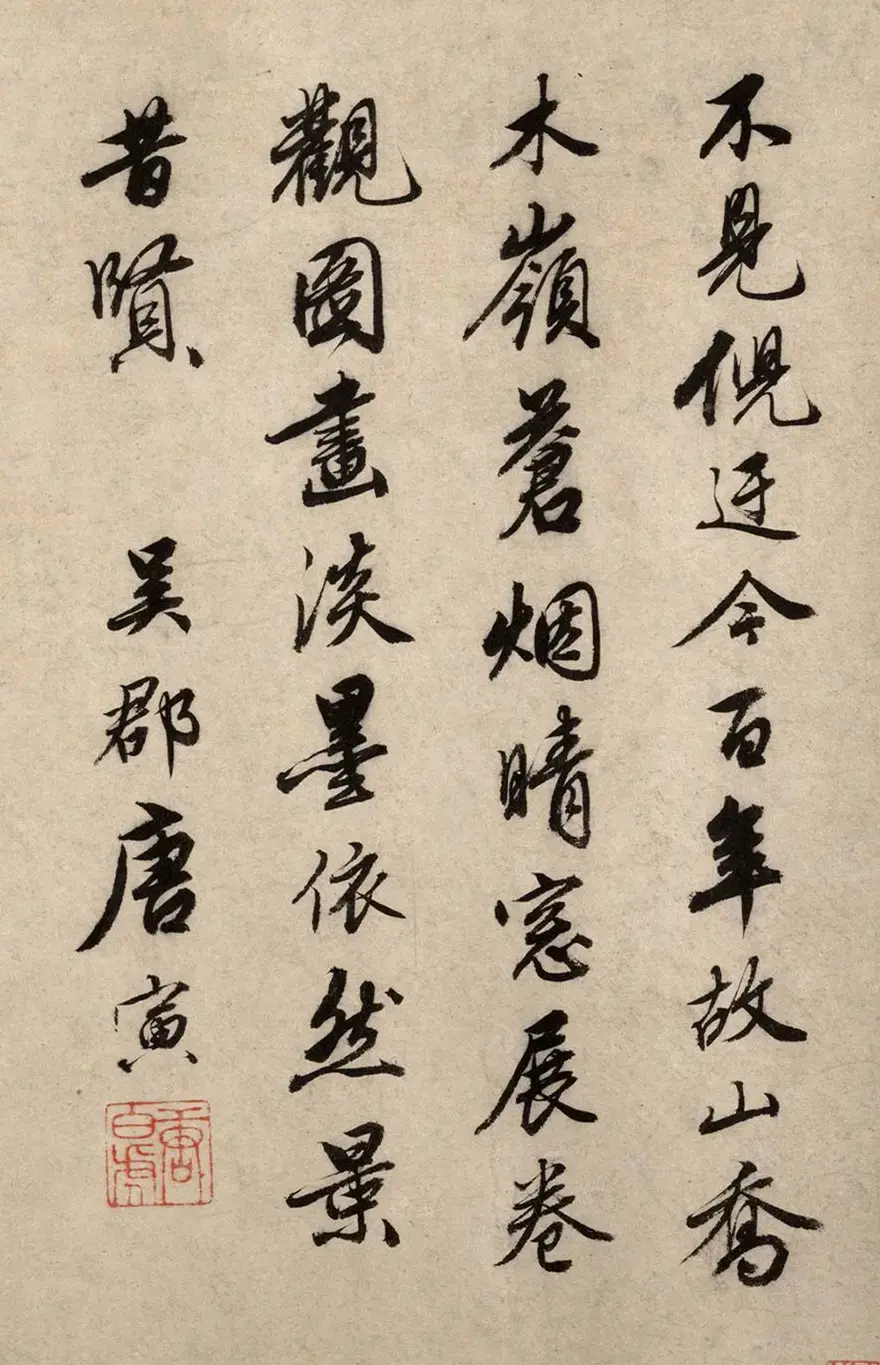 不見倪迂今百年故山喬
木嶺蒼烟晴窓展卷
觀圖畫淡墨依然景
昔賢
吳郡唐寅
唐白虎